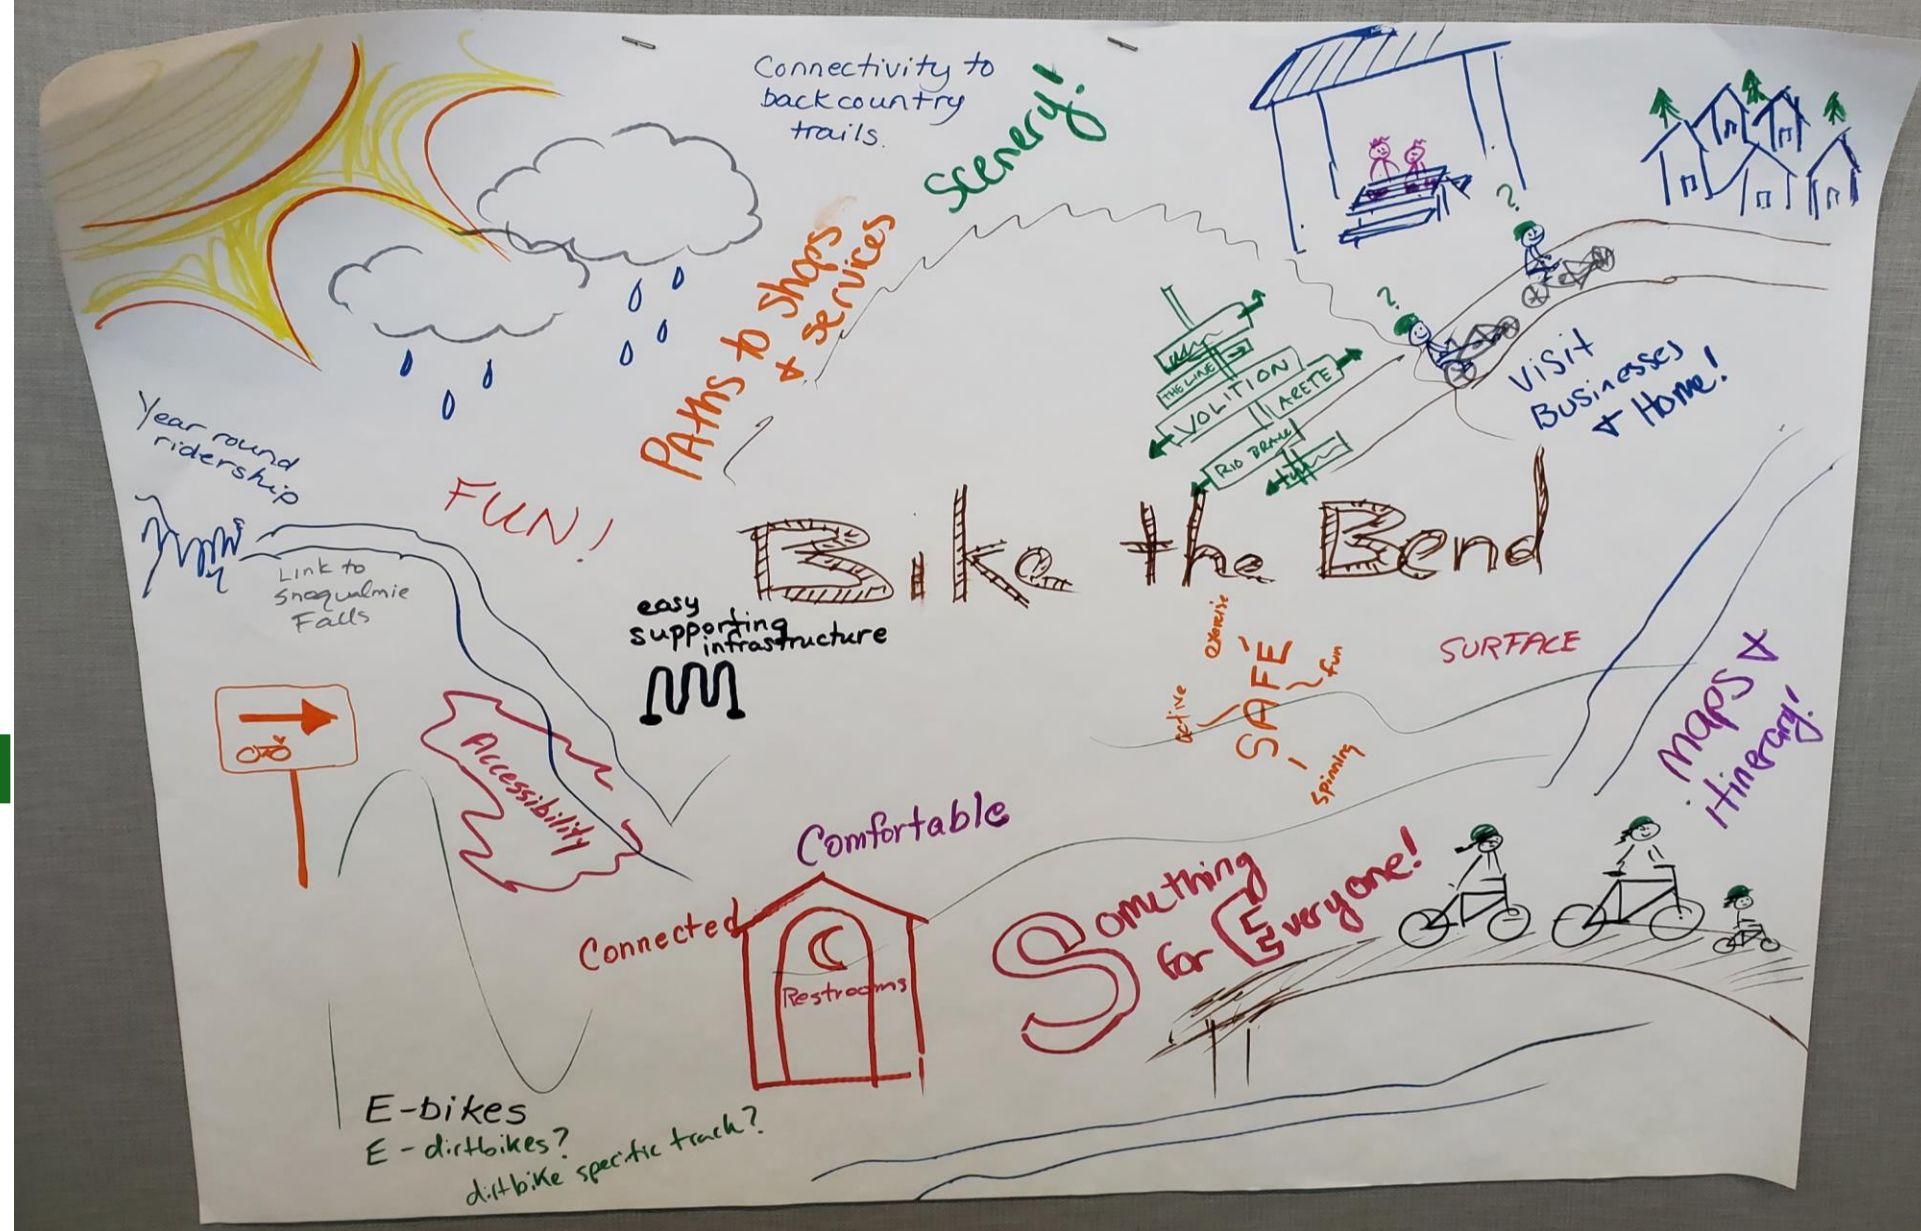 Connectivity to
backcountry
trails.
Scenery!
Paths to shops
& services
?
?
THE LINE
VOLITION
ARETE
RIO BRAVO
Visit
Businesses
& Home!
Year round
ridership
FUN!
Link to
Snoqualmie
Falls
Bike the Bend
easy
supporting
infrastructure
exercise
SAFE
fun
active
spinning
SURFACE
Maps &
itinerary!
Accessibility
Comfortable
Connected
Restrooms
Something
for Everyone!
E-bikes
E-dirtbikes?
dirtbike specific track?